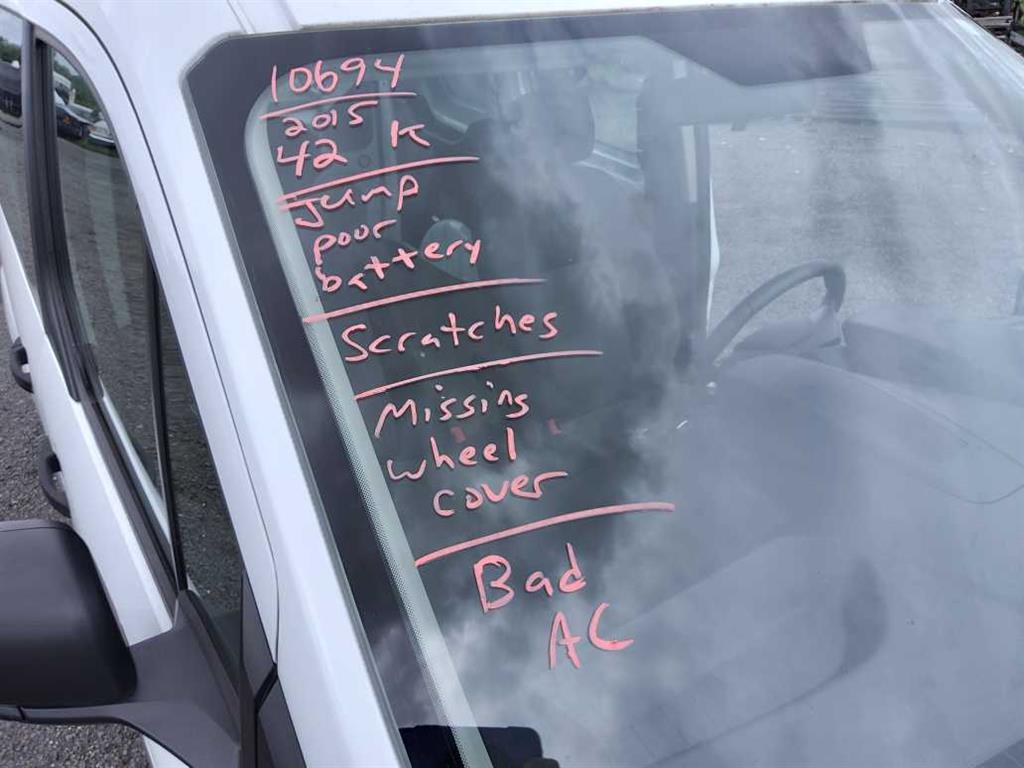 10694
2015
42 K
Jump
pour
battery
Scratches
Missing
wheel
cover
Bad
AC